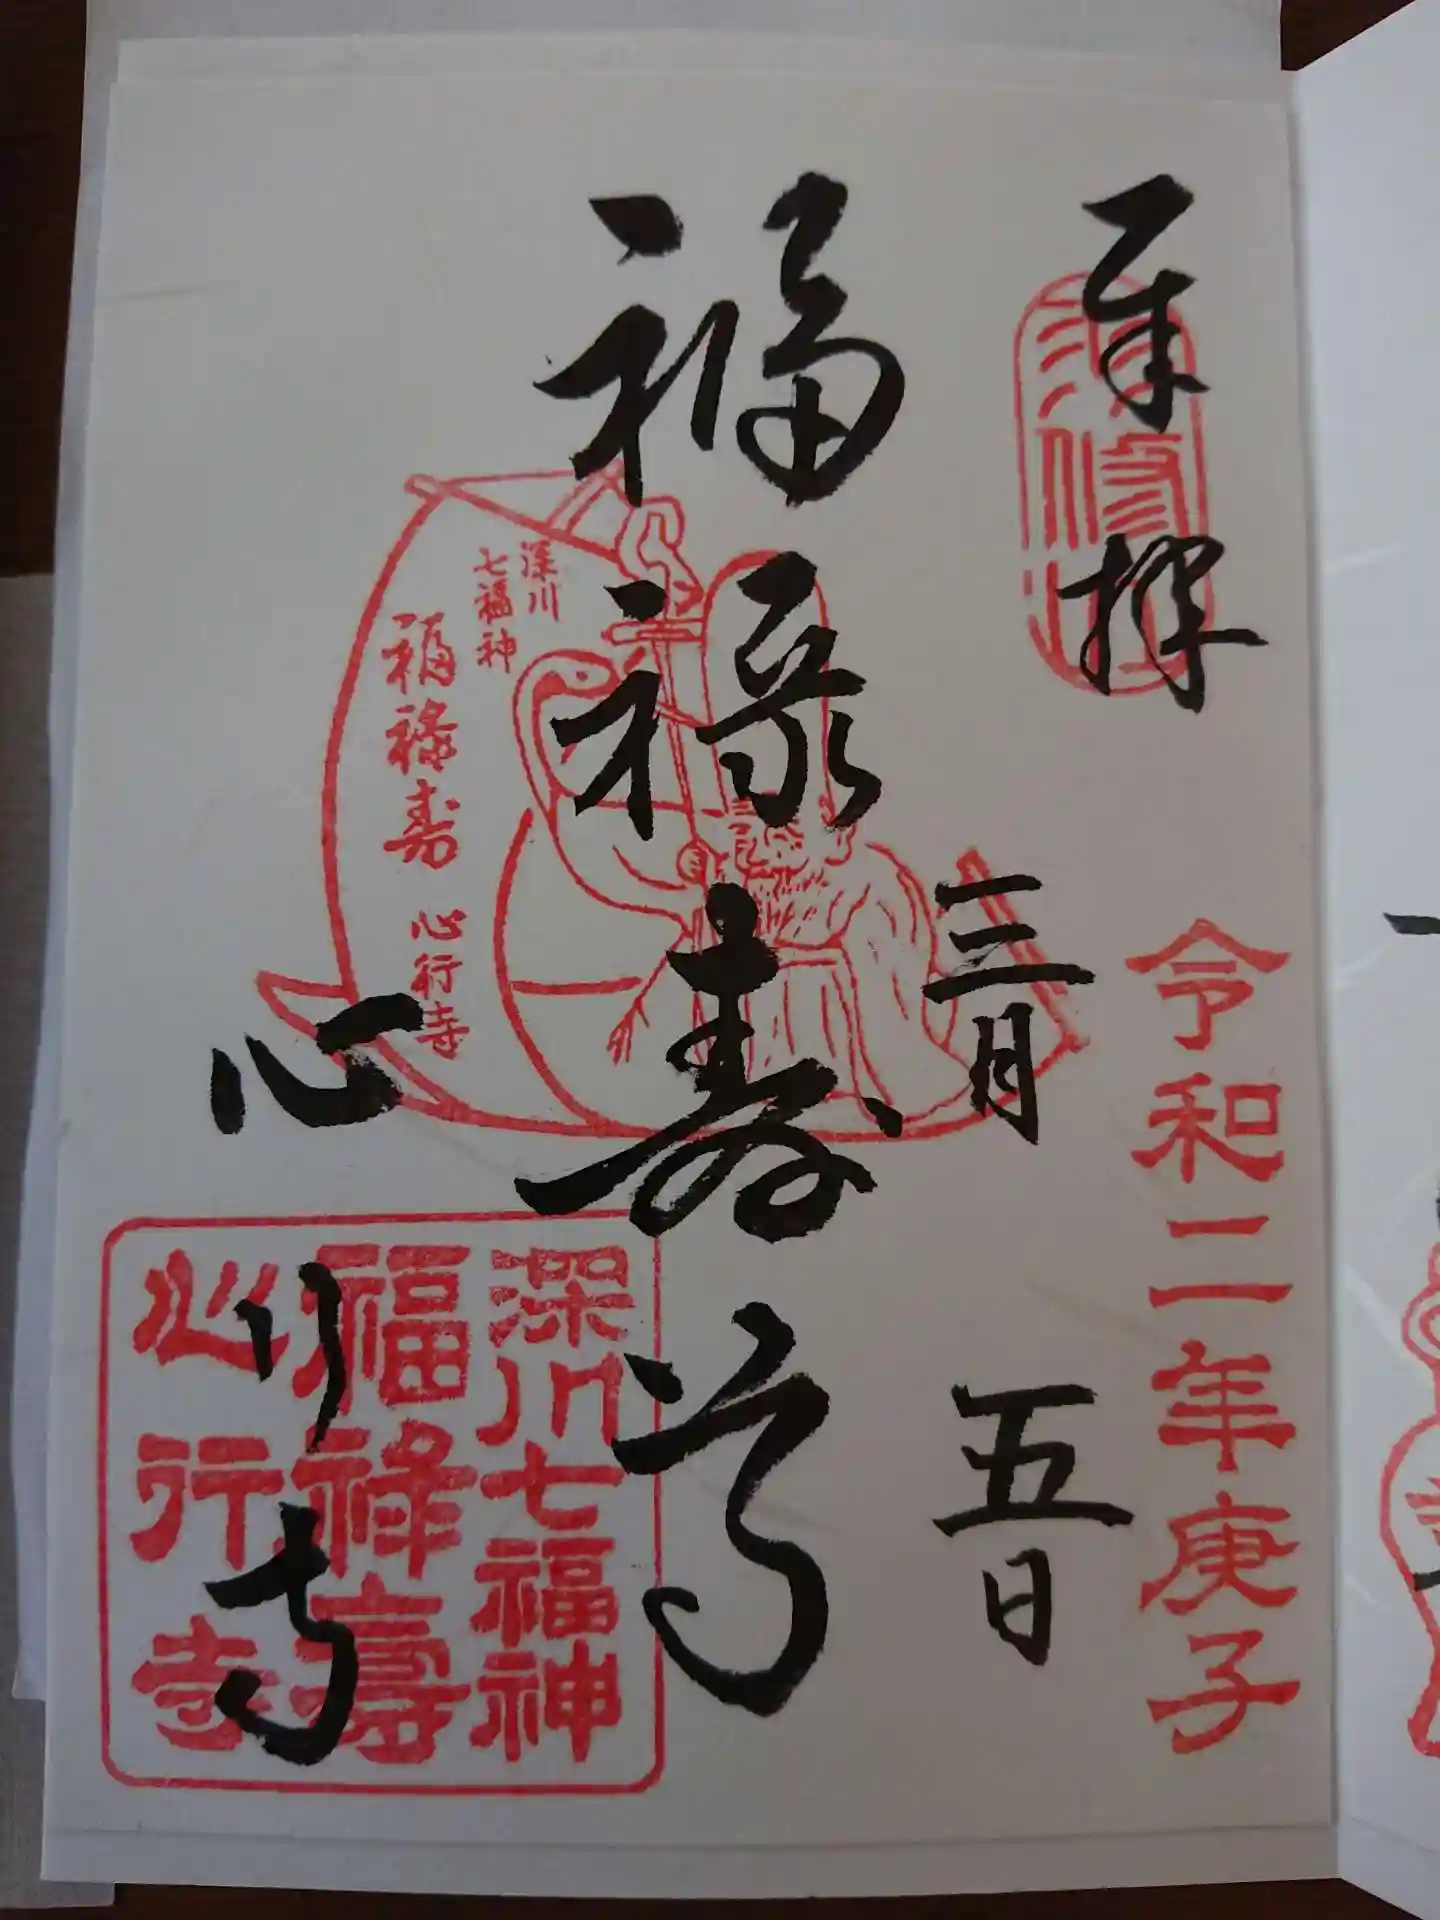 奉拝
令和二年庚子
三月五日
福禄寿尊
心行寺
深川
七福神
福禄寿
心行寺
深川七福神
福禄壽
心行寺